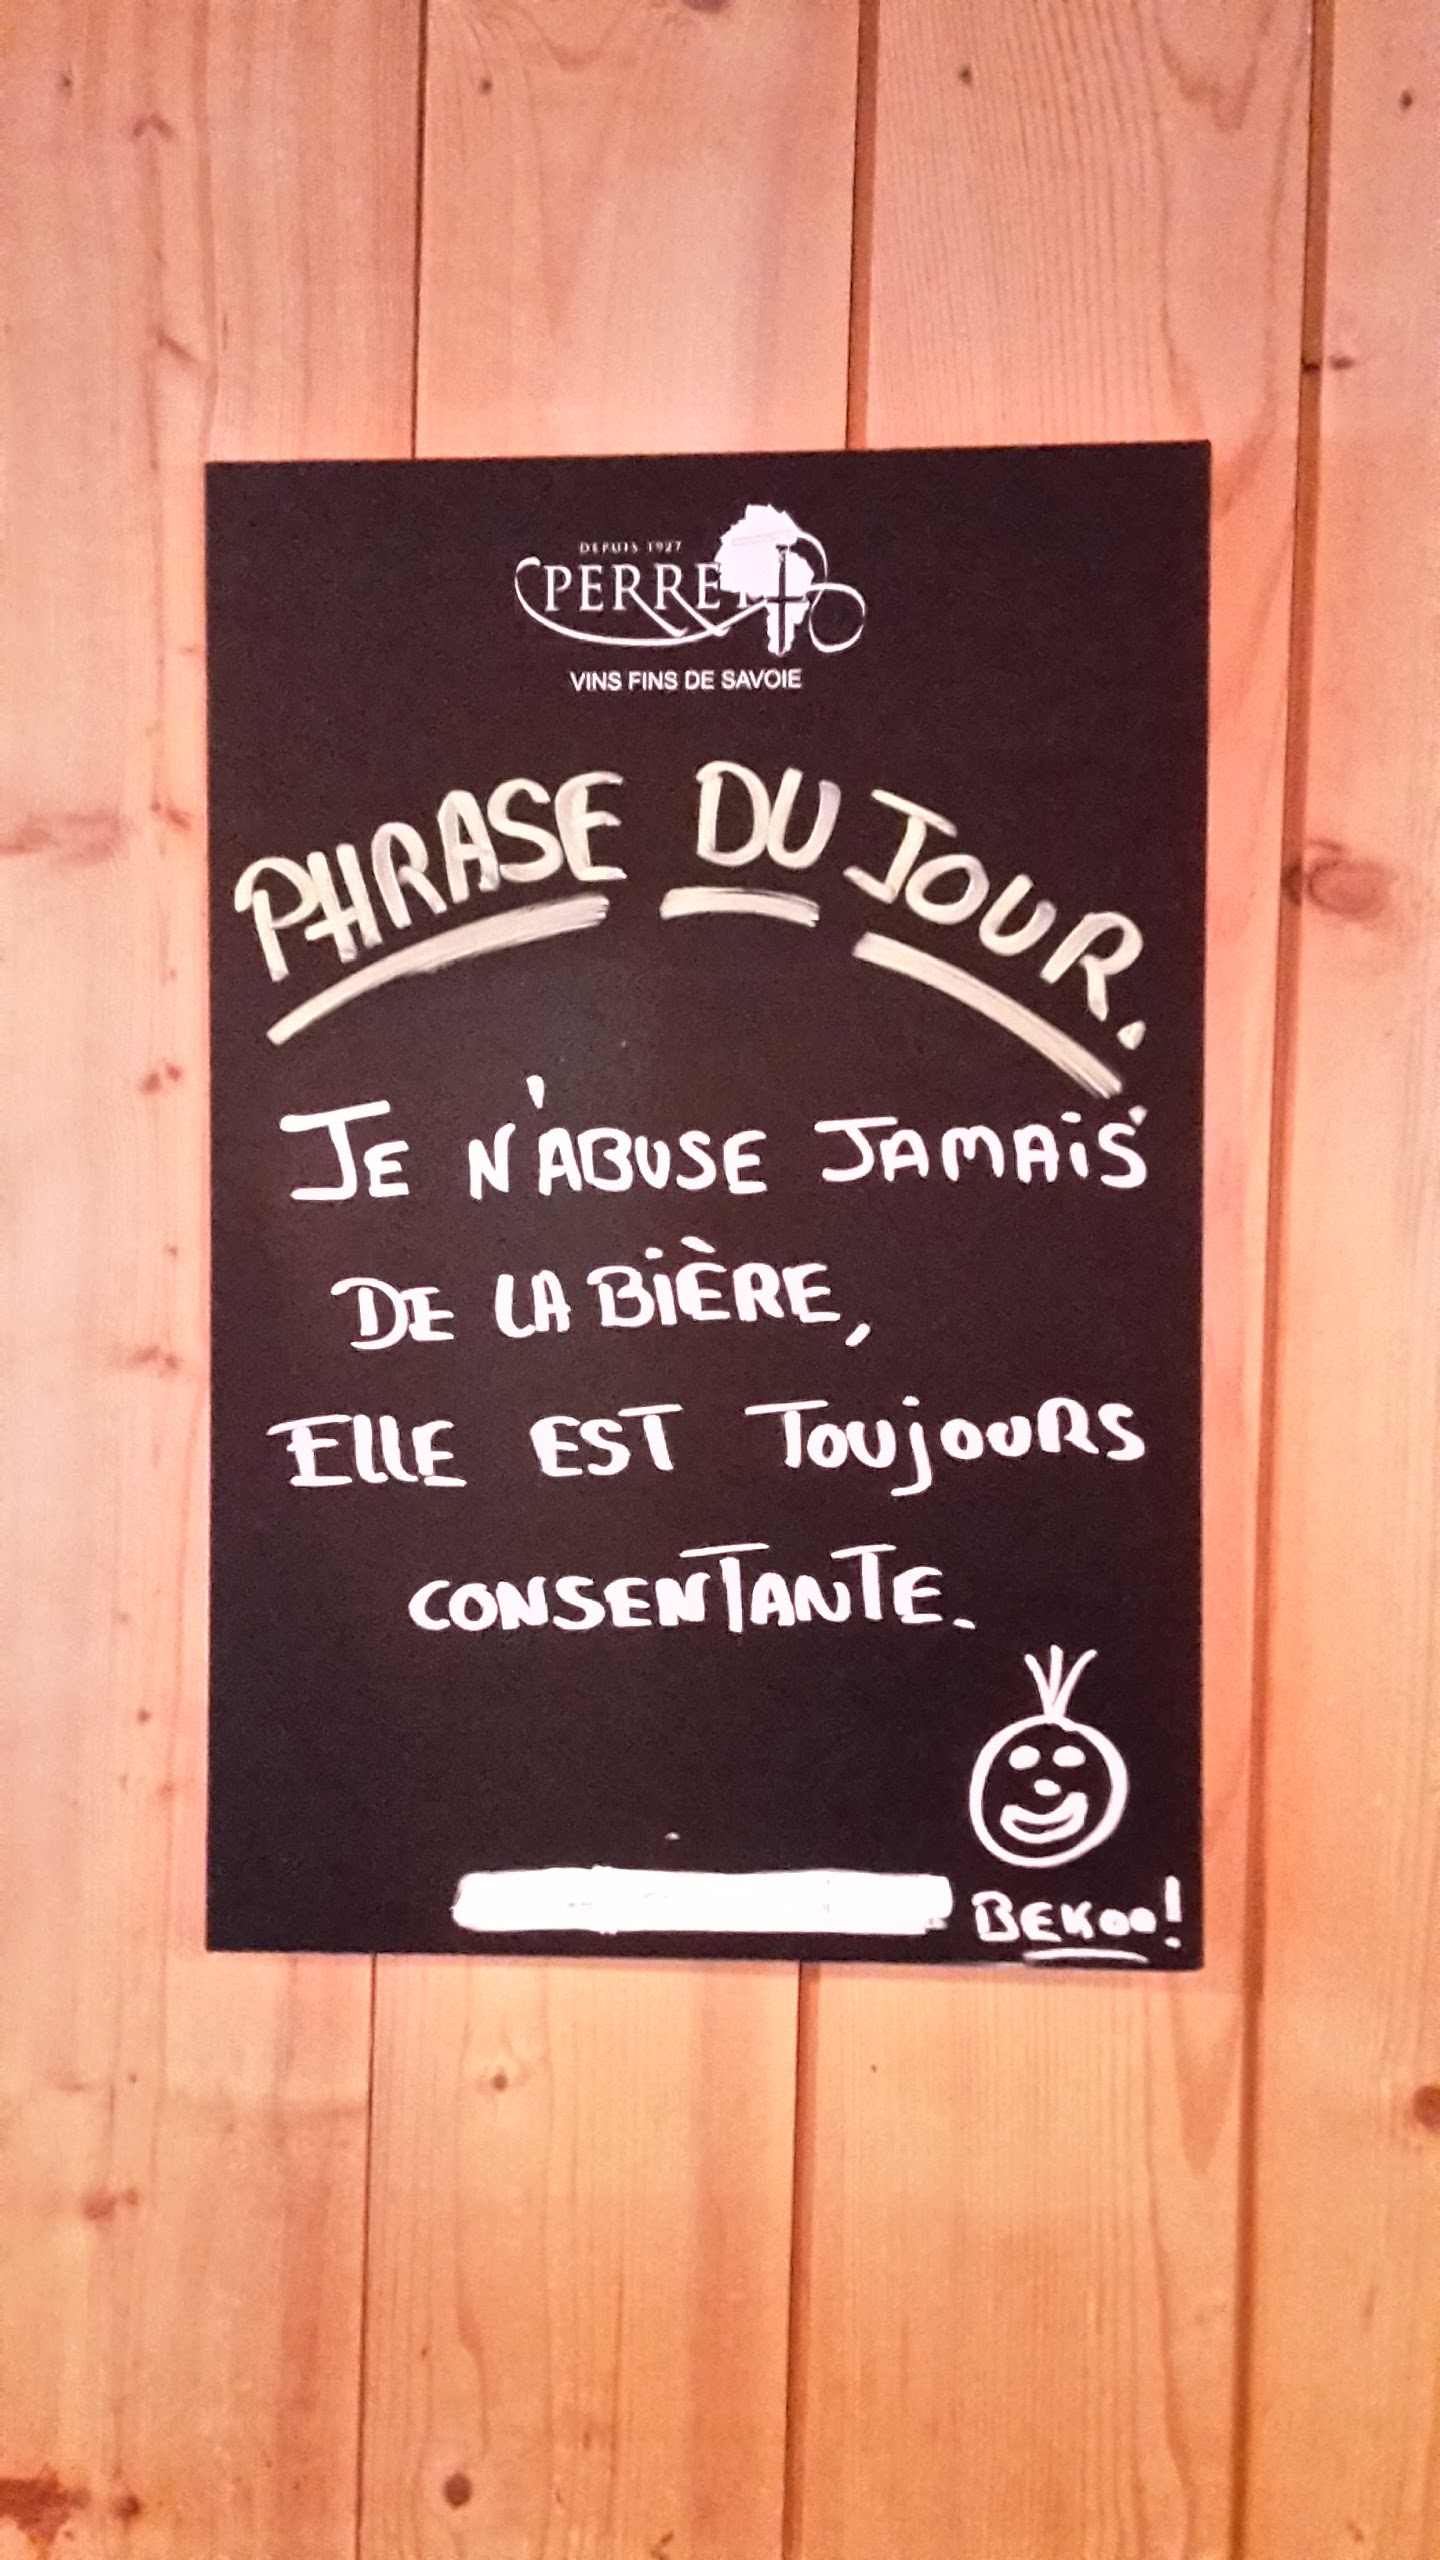 DEPUIS 1927
PERRET
VINS FINS DE SAVOIE
PHRASE DU JOUR.
JE N'ABUSE JAMAIS
DE LA BIÈRE,
ELLE EST TOUJOURS
CONSENTANTE.
BEKOO!